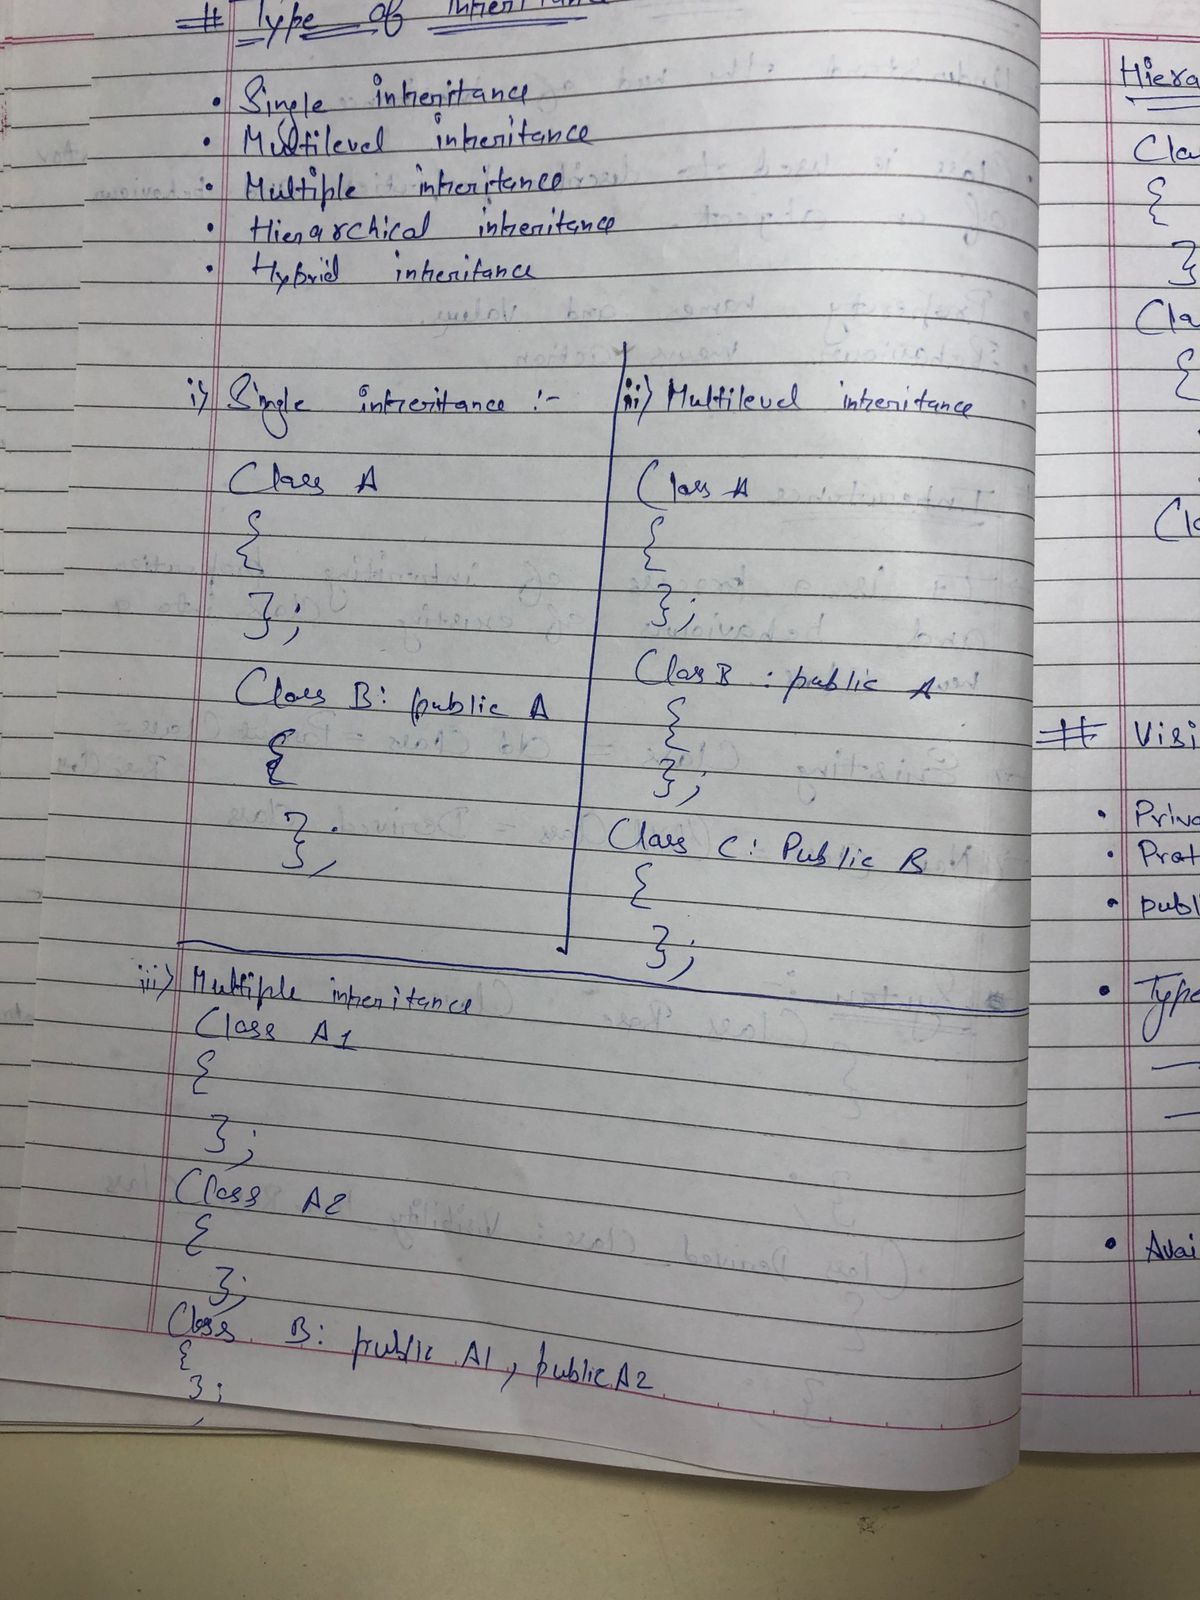 # Type of inheritance
• Single inheritance
• Multilevel inheritance
• Multiple inheritance
• Hierarchical inheritance
• Hybrid inheritance
i) Single inheritance :-
Class A
{
};
Class B: public A
{
};
ii) Multilevel inheritance
Class A
{
};
Clas B : public A
{
};
Class C: Public B
{
};
iii) Multiple inheritance
Class A1
{
};
Class A2
{
};
Class B: public A1, public A2
{
};
Hiera
Cla
{
}
Cla
{
Cla
# Visi
• Priva
• Prot
• publi
• Type
• Avai